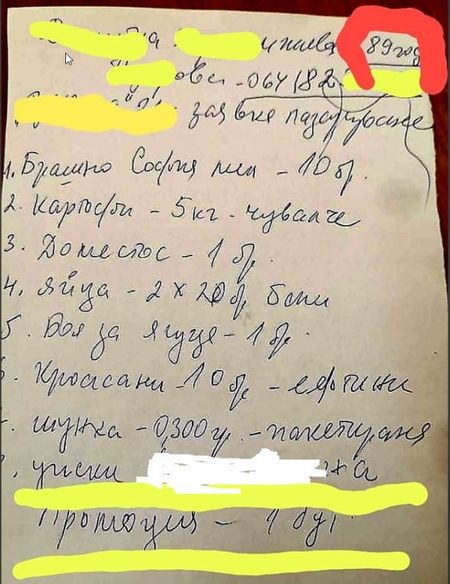 89 год
064/82
заявка пазаруване
1. Брашно София мел - 10 бр.
2. Картофи - 5 кг - чувалче
3. Доместос - 1 бр.
4. Яйца - 2 х 20 бр бели
5. Боя за яйца - 1 бр.
6. Кроасани - 10 бр - евтини
шунка - 0,300 гр. - пакетирана
уиски
Промоция - 1 бут.